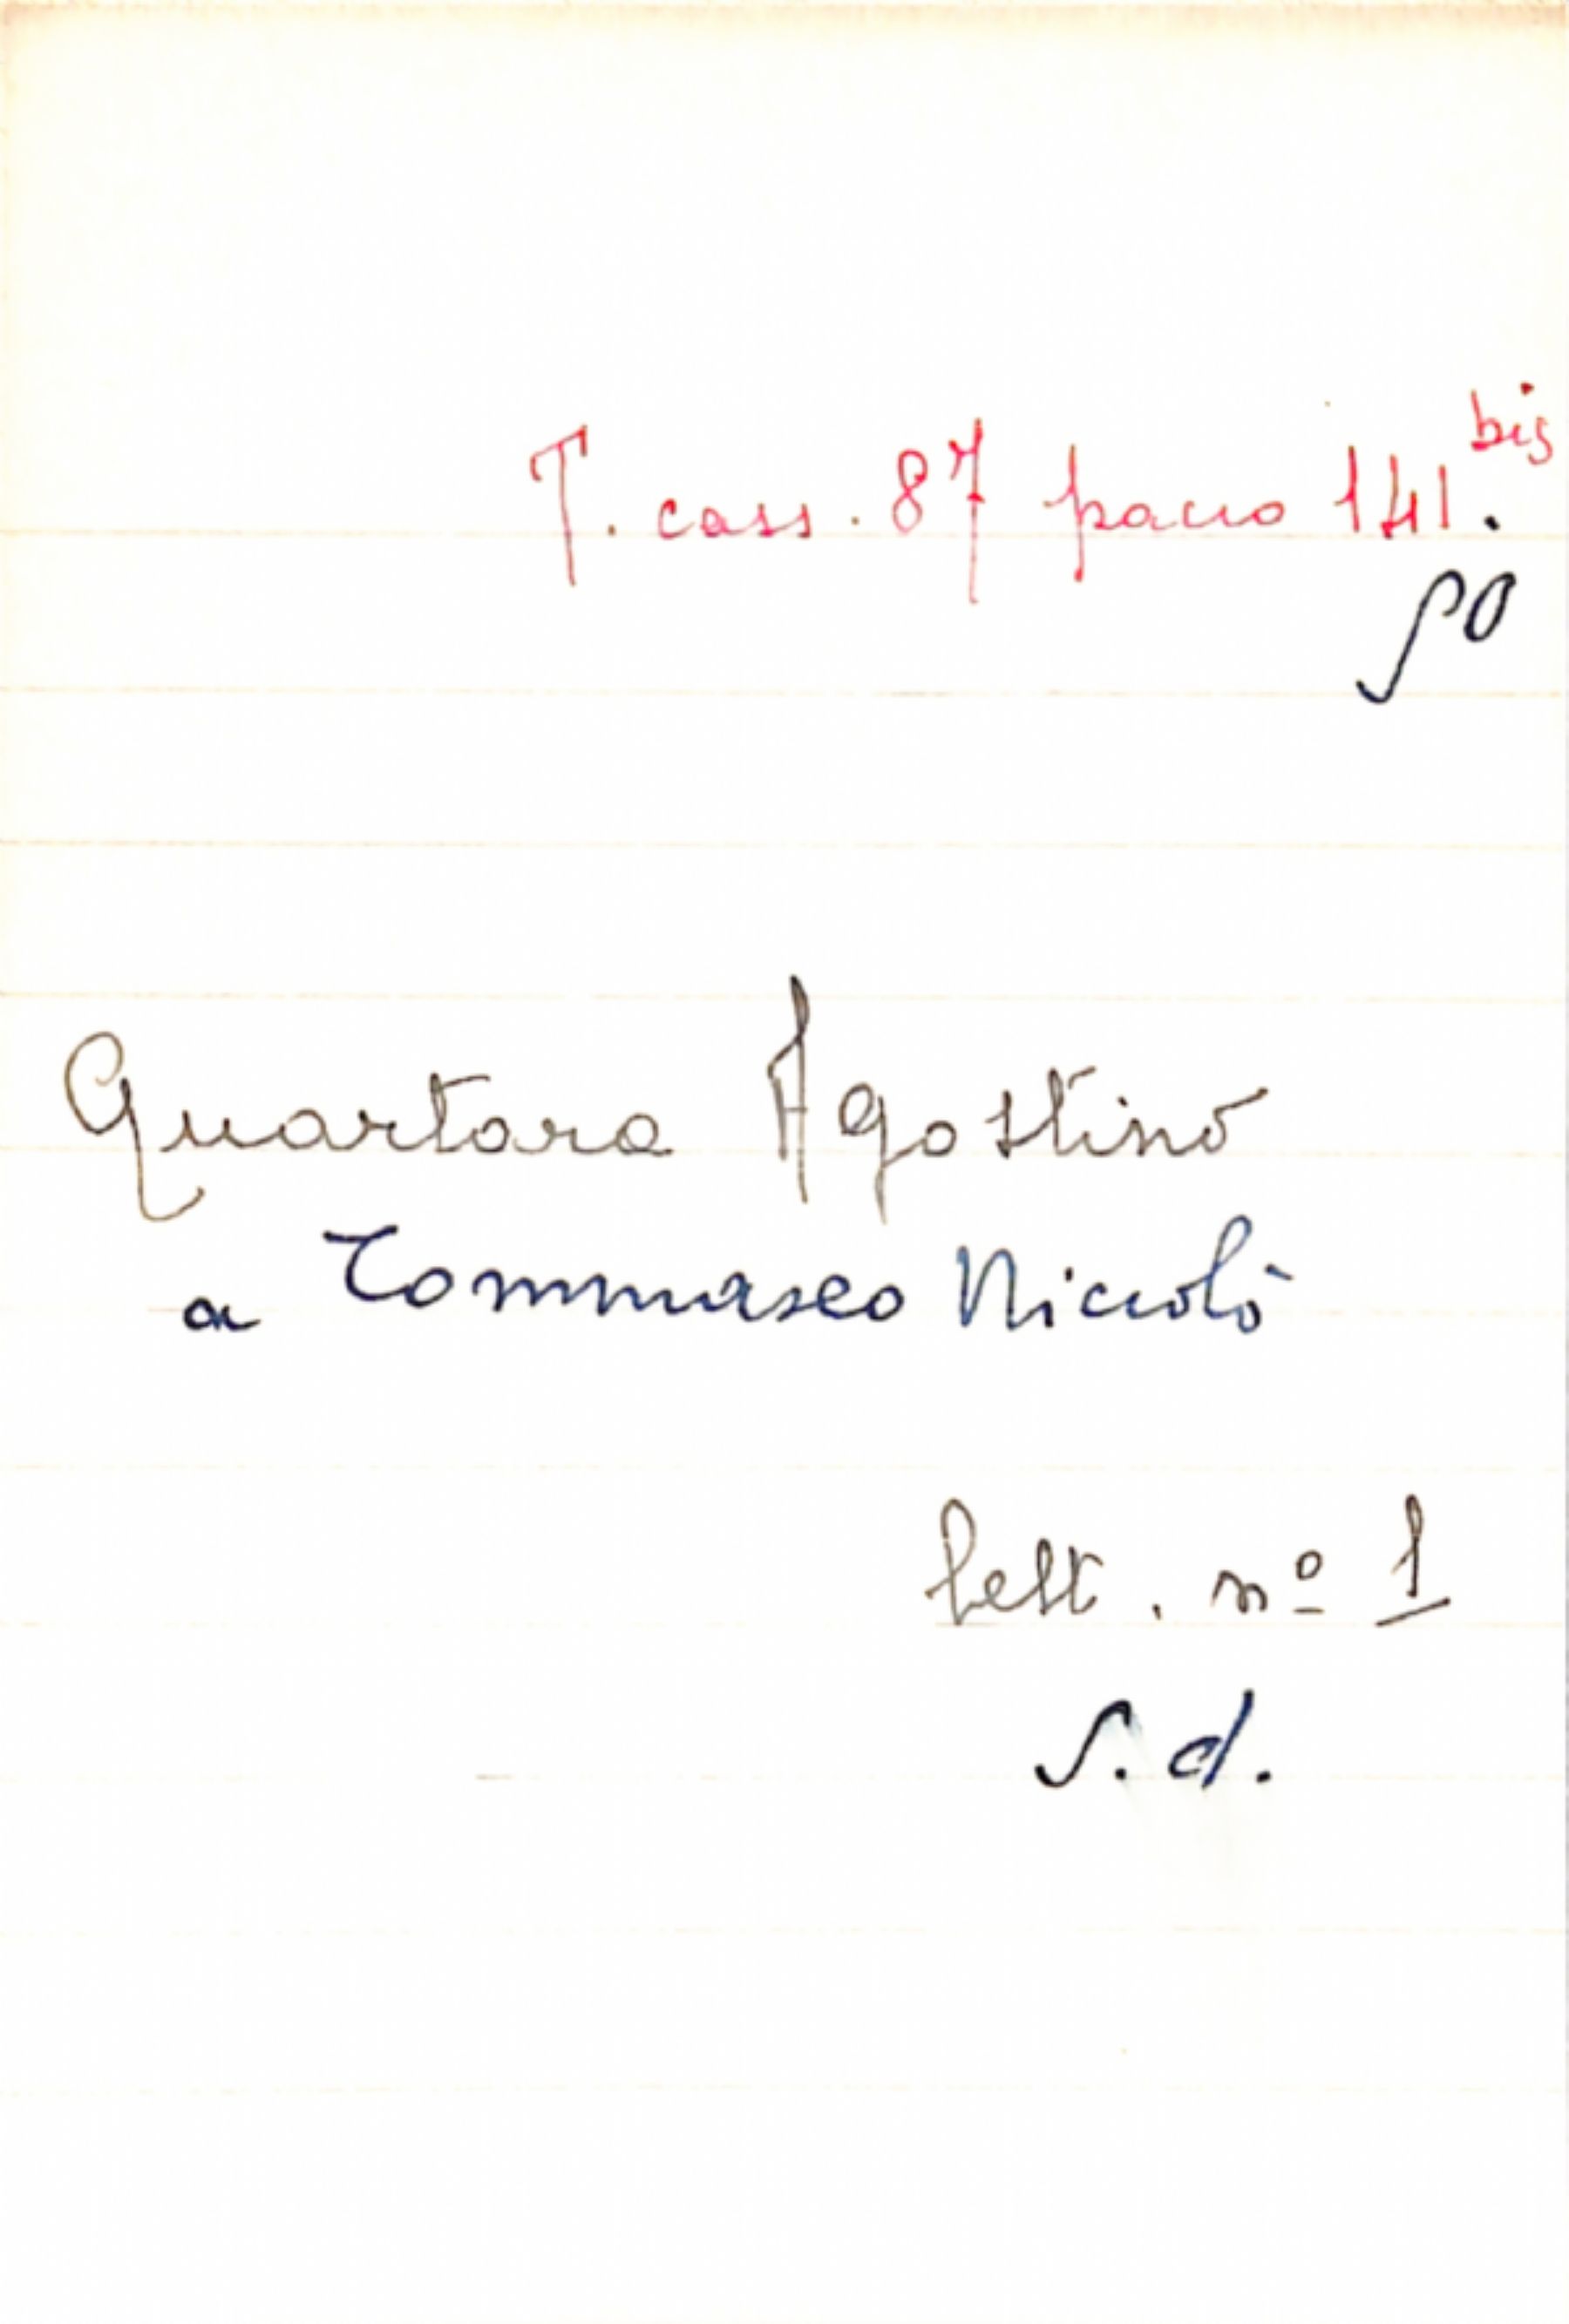 T. cass. 87 pacco 141.bis
50
Quartara Agostino
a Tommaseo Niccolò
lett. nº 1
S. d.